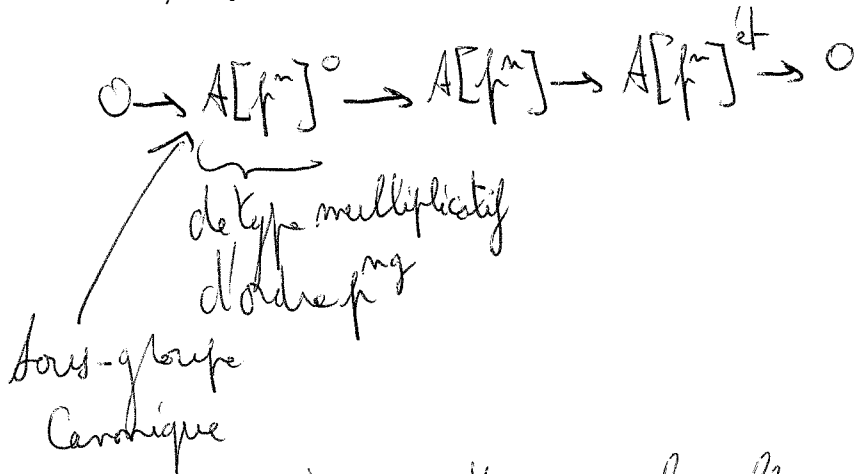 0 → A[pⁿ]° → A[pⁿ] → A[pⁿ]^ét → 0
de type multiplicatif
d'ordre p^ng
Sous-groupe
Canonique